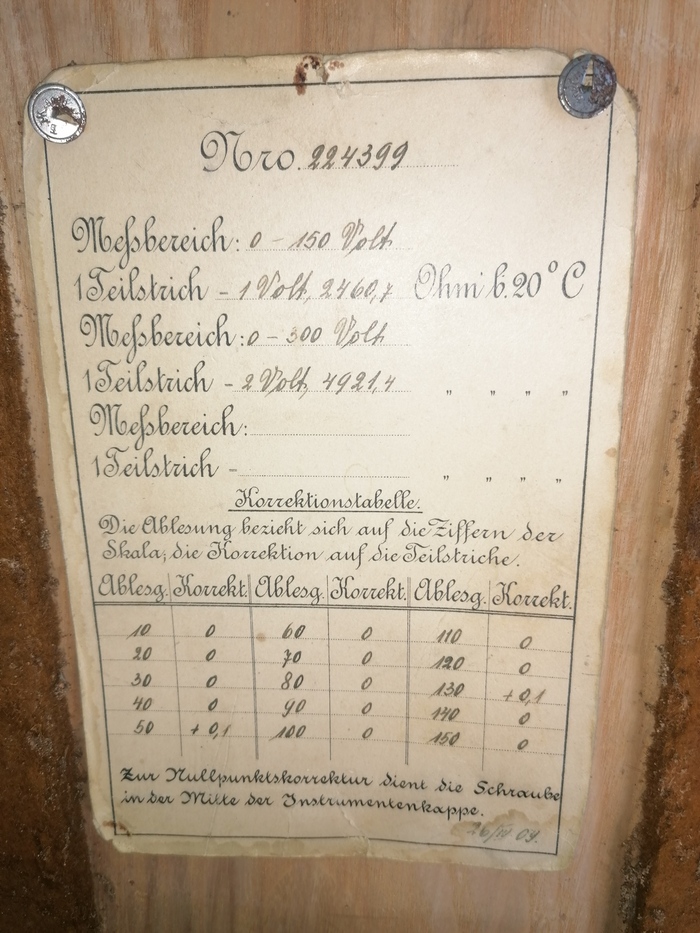 Nro. 224399
Meßbereich: 0 - 150 Volt
1 Teilstrich - 1 Volt, 2460,7 Ohm b. 20° C
Meßbereich: 0 - 300 Volt
1 Teilstrich - 2 Volt, 4921,4 " " " "
Meßbereich:
1 Teilstrich - " " " "
Korrektionstabelle.
Die Ablesung bezieht sich auf die Ziffern der
Skala, die Korrektion auf die Teilstriche.
Ablesg. Korrekt. Ablesg. Korrekt. Ablesg. Korrekt.
10 0 60 0 110 0
20 0 70 0 120 0
30 0 80 0 130 +0,1
40 0 90 0 140 0
50 +0,1 100 0 150 0
Zur Nullpunktskorrektur dient die Schraube
in der Mitte der Instrumentenkappe.